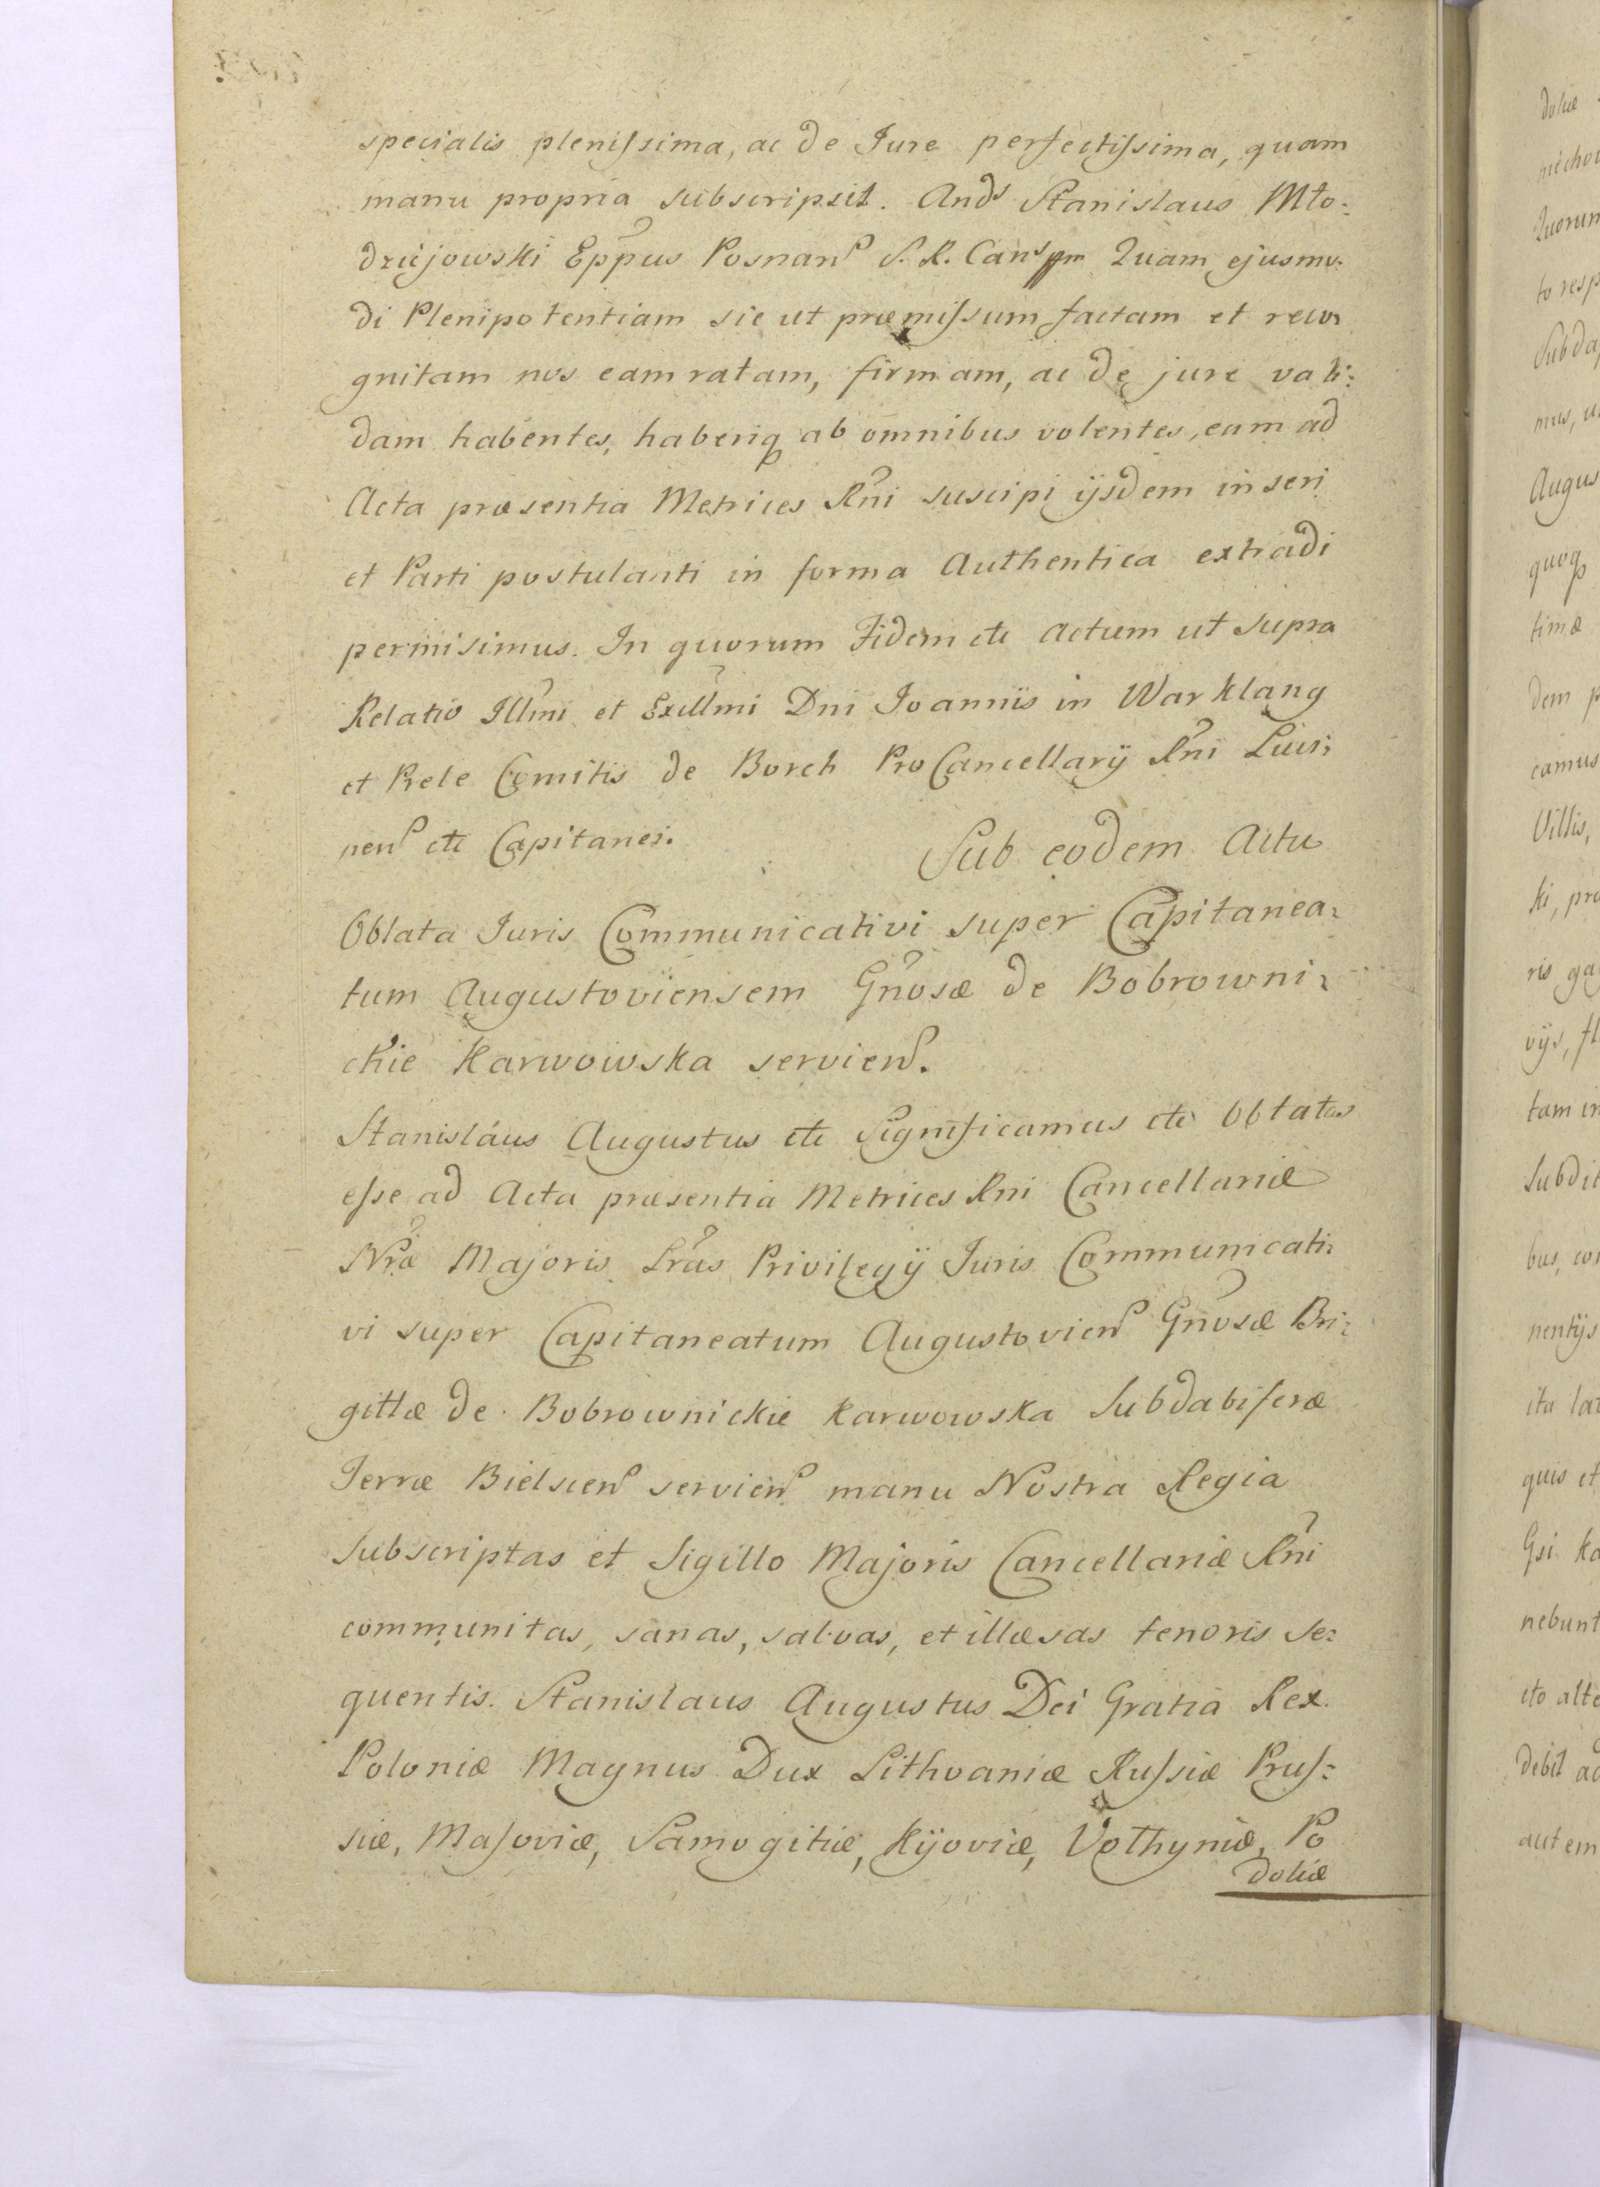 specialis plenissima, ac de Jure perfectissima, quam
manu propria subscripsit. Ands Stanislaus Mło:
dziejowski Eppus Posnan S. R. Cans ppm Quam ejusmo:
di Plenipotentiam sic ut præmissum factam et reco
gnitam nos eam ratam, firmam, ac de jure vali:
dam habentes, haberiq ab omnibus volentes, eam ad
Acta præsentia Metrices Rni suscipi ijsdem inseri
et Parti postulanti in forma Authentica extradi
permisimus. In quorum Fidem etc Actum ut supra
Relatio Illmi et Excllmi Dni Joannis in Warklang
et Prele Comitis de Borch ProCancellarij Rni Lucy:
nen etc Capitanei.
Sub eodem Actu
Oblata Juris Communicativi super Capitanea:
tum Augustoviensem Gnosæ de Bobrowni:
ckie Karwowska servien.
Stanislaus Augustus etc Significamus etc Oblatas
esse ad Acta præsentia Metrices Rni Cancellariæ
Nræ Majoris Lras Privilegij Juris Communicati:
vi super Capitaneatum Augustovien Gnosæ Bri:
gittæ de Bobrownickie Karwowska Subdapiferæ
Terræ Bielscen servien manu Nostra Regia
subscriptas et Sigillo Majoris Cancellariæ Rni
communitas, sanas, salvas, et illæsas tenoris se:
quentis. Stanislaus Augustus Dei Gratia Rex
Poloniæ Magnus Dux Lithvaniæ Russiæ Prus:
siæ, Masoviæ, Samogitiæ, Kijoviæ, Volhyniæ, Po
doliæ
doliæ
Quorum
to resp
Subda
mus, u
Augus
quoq
timæ
dem p
camus
Villis,
ki, pra
ris ga
vijs, fl
tam in
Subdit
bus, co
nentijs
ita la
quis et
Gsi Ka
nebunt
cto alte
debit ad
autem